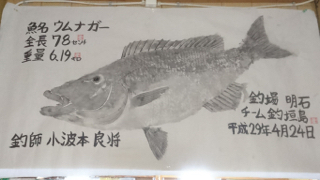 魚名 ウムナガー
全長 78センチ
重量 6.19キロ
釣師 小波本 良将
釣場 明石
チーム釣垣島
平成29年4月24日